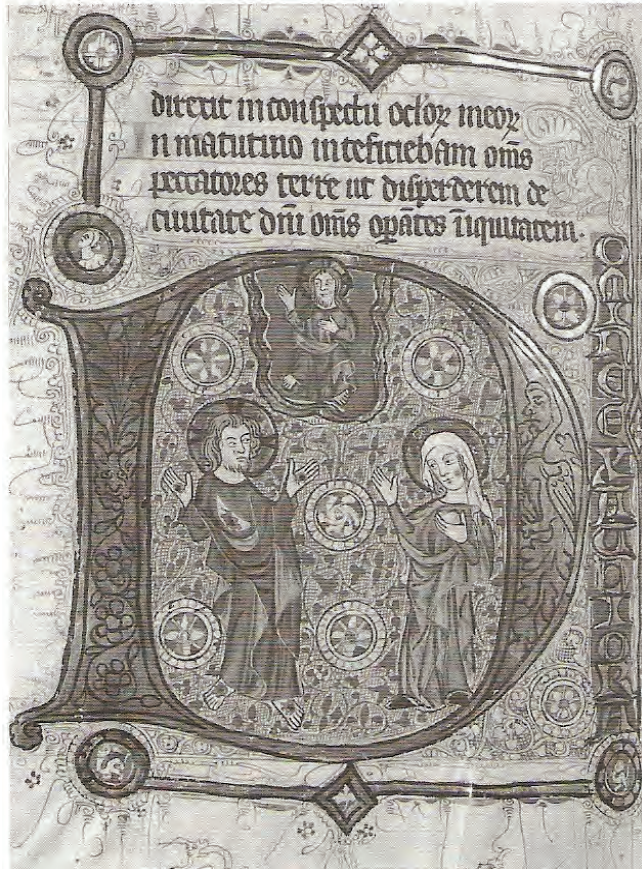 direxit in conspectu ocl'oꝝ meoꝝ
In matutino inteficiebam om̄s
peccatores terre ut disperderem de
ciuitate dn̄i om̄s opa̅tes īiquitatem.
D
OMINE EXAUDI ORA